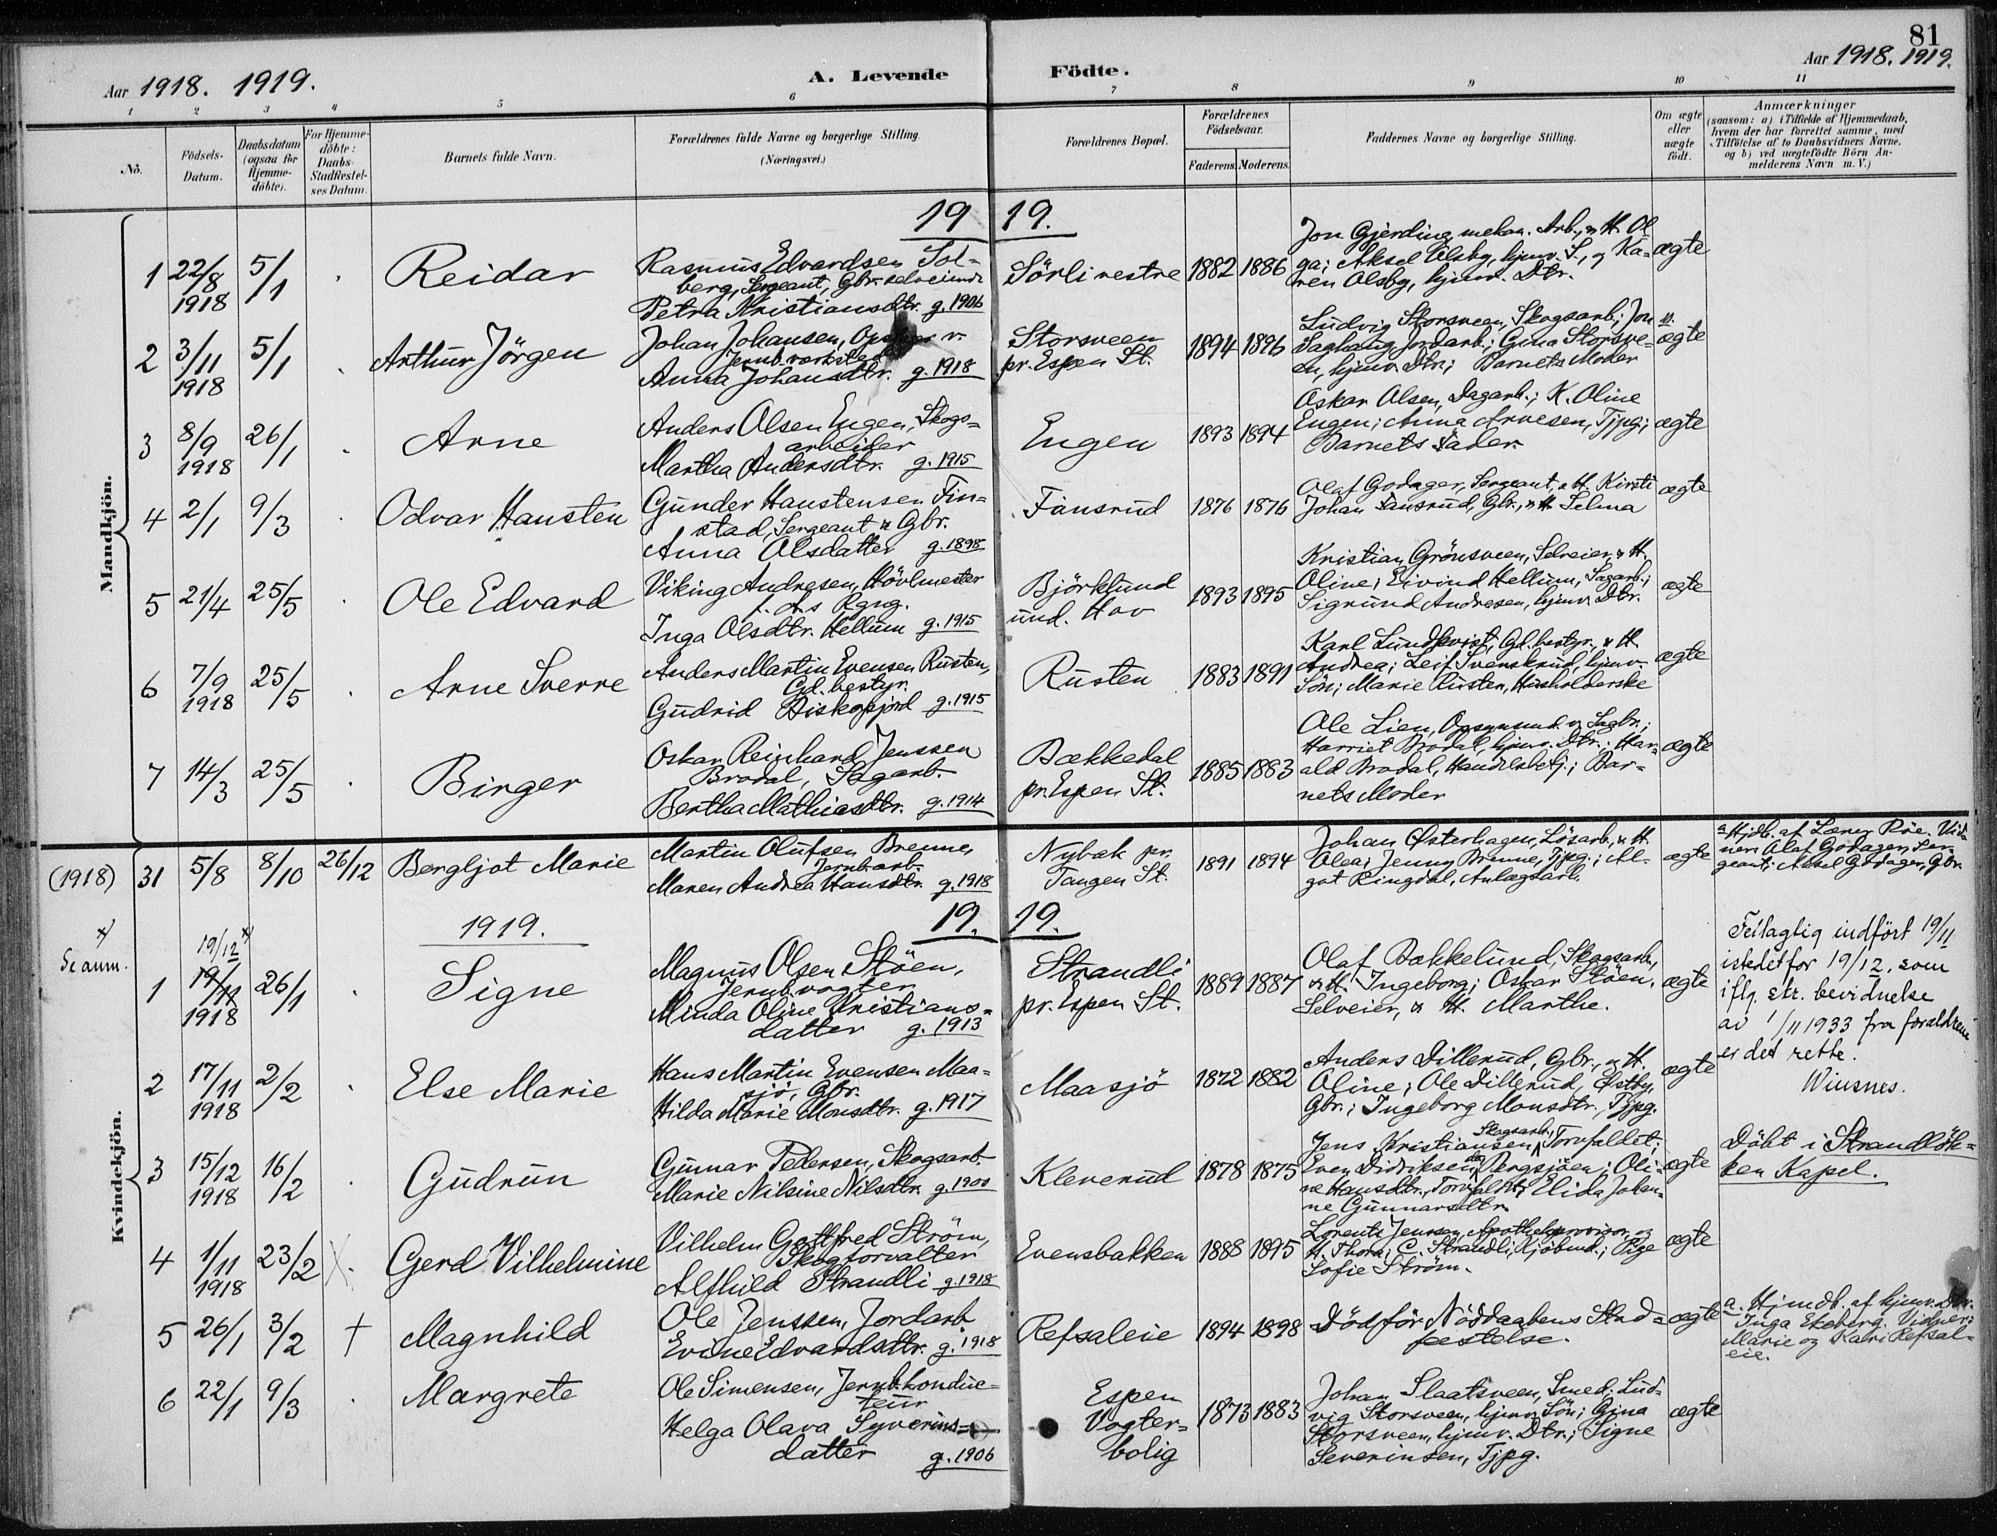 81
Aar 1918. 1919.
A. Levende
Födte.
Aar 1918. 1919.
1 2 3 4 5 6 7 8 9 10 11
No.
Födsels-
Datum.
Daabsdatum
(ogsaa for
Hjemme-
döbte).
For Hjemme-
döbte:
Daabs-
Stadfæstel-
ses Datum.
Barnets fulde Navn.
Forældrenes fulde Navne og borgerlige Stilling.
(Næringsvei.)
Forældrenes Bopæl.
Forældrenes
Födselsaar.
Faderens. Moderens.
Faddernes Navne og borgerlige Stilling.
Om ægte
eller
uægte
födt.
Anmærkninger
(saasom: a) i Tilfælde af Hjemmedaab,
hvem der har forrettet samme, med
Tilföielse af to Daabsvidners Navne.
og b) ved uægtefödte Börn An-
melderens Navn m. V.)
Mandkjön.
19 19.
1 22/8 1918 5/1 Reidar
Rasmus Edvardsen Sol-
berg, Sergeant, Gbr. selveiende
Petra Kristiansdtr. g. 1906
Sörli vestre 1882 1886
Jon Gjerding mekan. Arb., & H. Ol
ga; Aksel Alsby, hjmv. S., og Ka-
ren Olsby, hjmv. Dtr.
ægte
2 3/11 1918 5/1 Arthur Jörgen
Johan Johansen, v.
Jernb.værksted
Anna Johansdtr. g. 1918
Storsveen
pr. Espen St.
1894 1896
Ludvig Storsveen, Skogsarb.; Jon
Saghaug Jordarb.; Gina Storsve-
en, hjmv. Dtr.; Barnets Moder
ægte
3 8/9 1918 26/1 Arne
Anders Olsen Engen, Skogs-
arbeider
Martha Andersdtr. g. 1915
Engen 1893 1894
Oskar Olsen, Dagarb.; K. Oline
Engen; Anna Arnesen, Tjpg.;
Barnets Fader.
ægte
4 2/1 9/3 Odvar Hansten
Gunder Hanstensen Fin-
stad, Sergeant & Gbr.
Anna Olsdatter g. 1898
Fansrud 1876 1876
Olaf Godager, Sergeant, & H. Kirsti
Johan Fansrud, Gbr., & H. Selma
ægte
5 21/4 25/5 Ole Edvard
Viking Andresen, Hövlmester
Inga Olsdtr. Hellum g. 1915
Björklund
und. Hov
1893 1895
Kristian Grönsveen, Selveier, & H.
Oline; Eivind Hellum, Sagarb.;
Sigrund Andresen, hjmv. Dtr.
ægte
6 7/9 1918 25/5 Arne Sverre
Anders Martin Evensen Rusten,
Gd. bestyr.
Gudrid Biskopfjord g. 1915
Rusten 1883 1891
Karl Lundkvist, Gd. bestyr. & H.
Andrea; Leif Svenskrud, hjmv.
Sön; Marie Rusten, Husholderske
ægte
7 14/3 25/5 Birger
Oskar Reinhard Jenssen
Brodal, Sagarb.
Bertha Mathiasdtr. g. 1914
Bækkedal
pr. Espen St.
1885 1883
Ole Lien, Opsynsmd. v. Sagbr.;
Harriet Brodal, hjmv. Dtr.; Har-
ald Brodal, Handelsbetj.; Bar-
nets Moder
ægte
(1918) 31 5/8 8/10 26/12 Bergljot Marie
Martin Olufsen Brenne,
Jernb.arb.
Maren Andrea Hansdtr. g. 1918
Nybak pr.
Tangen St.
1891 1894
Johan Østerhagen, Lösarb., & H.
Olea; Jenny Brenne, Tjpg.; Al-
got Ringdal, Anlægsarb.
ægte
a Hjdb. af Lærer Röe. Vid-
ner: Olaf Godager, Ser-
geant; Aksel Godager, Gbr.
Kvindekjön.
1919.
19. 19.
x)
Se anm.
19/12 x)
1 19/11 1918 26/1 Signe
Magnus Olsen Stöen,
Jernb.vogter
Minda Oline Kristians-
datter g. 1913
Strandli
pr. Espen St.
1889 1887
Olaf Bakkelund, Skogsarb.,
& H. Ingeborg; Oskar Stöen,
Selveier, & H. Marthe.
ægte
Feilagtig indfört 19/11
istedetfor 19/12, som
iflg. str. bevidnelse
av 1/11 1933 fra forældrene
er det rette.
Winsnes.
2 17/11 1918 2/2 Else Marie
Hans Martin Evensen Maa-
sjö, Gbr.
Hilda Marie Monsdtr. g. 1917
Maasjö 1872 1882
Anders Dillerud, Gbr., & H.
Oline; Ole Dillerud, Østby,
Gbr.; Ingeborg Monsdtr., Tjpg.
ægte
3 15/12 1918 16/2 Gudrun
Gunnar Pedersen, Skogsarb.
Marie Nilsine Nilsdtr. g. 1900
Kleverud 1878 1875
Jens Kristiansen, Skogsarb., Tornfaldet;
Even Didriksen, Bergsjöen; Oli-
ne Hansdtr., Tornfaldet; Elida Johan-
ne Gunnarsdtr.
ægte
Döbt i Strandlök-
ken Kapel.
4 1/11 1918 23/2 Gerd Vilhelmine
Vilhelm Gottfred Ström,
Skogforvalter
Alfhild Strandli g. 1918
Evensbakken 1888 1895
Lorentz Jenssen, Apothekprovisor, og
H. Thora; C. Strandli, Kjöbmd.; Pige
Sofie Ström.
ægte
5 26/1 3/2 † Magnhild
Ole Jenssen, Jordarb.
Evine Edvardsdtr. g. 1918
Refsaleie 1894 1898
Död för Nöddaabens Stad-
fæstelse.
ægte
a. Hjmdb. af hjmv. Dtr.
Inga Ekeberg. Vidner:
Marie og Kari Refsal-
eie.
6 22/1 9/3 Margrete
Ole Simensen, Jernb.konduc-
teur
Helga Olava Syverins-
datter g. 1906
Espen
Vogter-
bolig
1873 1883
Johan Slaatsveen, Smed; Lud-
vig Storsveen, hjmv. Sön; Gina
Storsveen, hjmv. Dtr.; Signe
Severinsen, Tjpg.
ægte